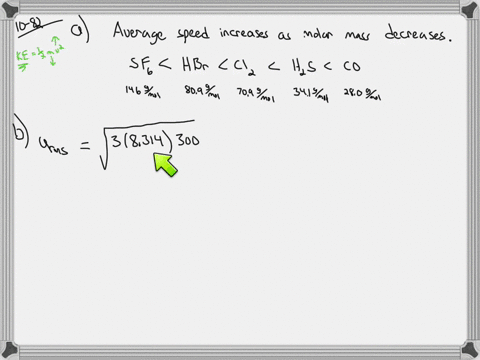 10-82 a) Average speed increases as molar mass decreases.
KE = ½ m u²
SF₆ < HBr < Cl₂ < H₂S < CO
146 g/mol 80.9 g/mol 70.9 g/mol 34.1 g/mol 28.0 g/mol
b) u_rms = √3(8.314)300